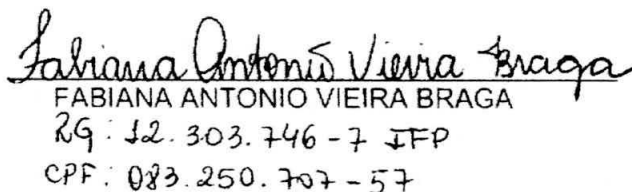 Fabiana Antonio Vieira Braga
FABIANA ANTONIO VIEIRA BRAGA
RG: 12.303.746-7 IFP
CPF: 083.250.707-57